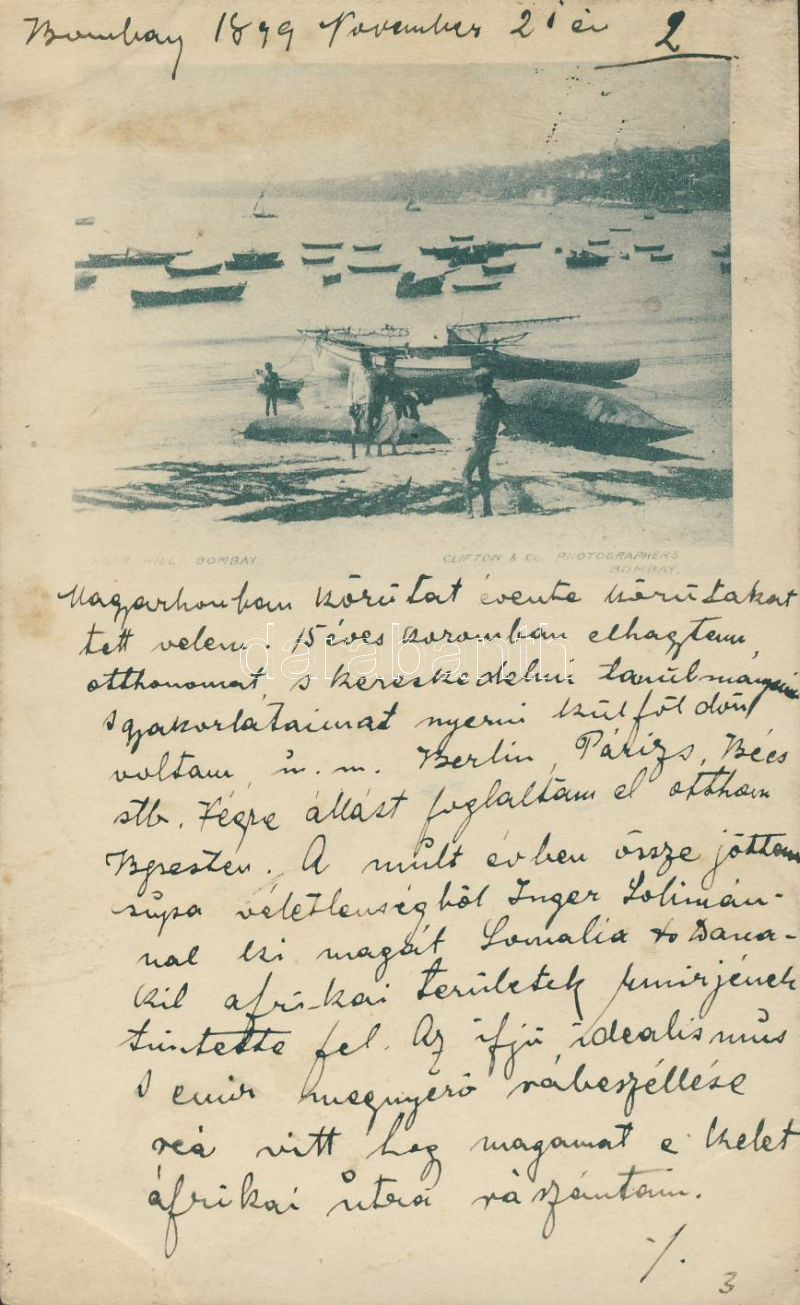 Bombay 1899 November 21 én 2
HILL, BOMBAY.
CLIFTON & Co. PHOTOGRAPHERS
BOMBAY.
Magyarhonban körútat évente körútakat
tett velem. 15 éves koromban elhagytam
otthonomat, s kereskedelmi tanulmányaim
s gyakorlataimat nyerni külföldön
voltam, u. m. Berlin, Párizs, Bécs
stb. Végre állást foglaltam el otthon
Bpesten. A mult évben össze jöttem
véletlenségböl Inger Solimán-
nal ki magát Somalia & Dana-
kil afrikai területek Emirjének
tüntette fel. Az ifjú idealismus
s emir megnyerö rábeszéllése
reá vitt hog magamat e kelet
áfrikai útra rászántam.
./.
3
darabanth